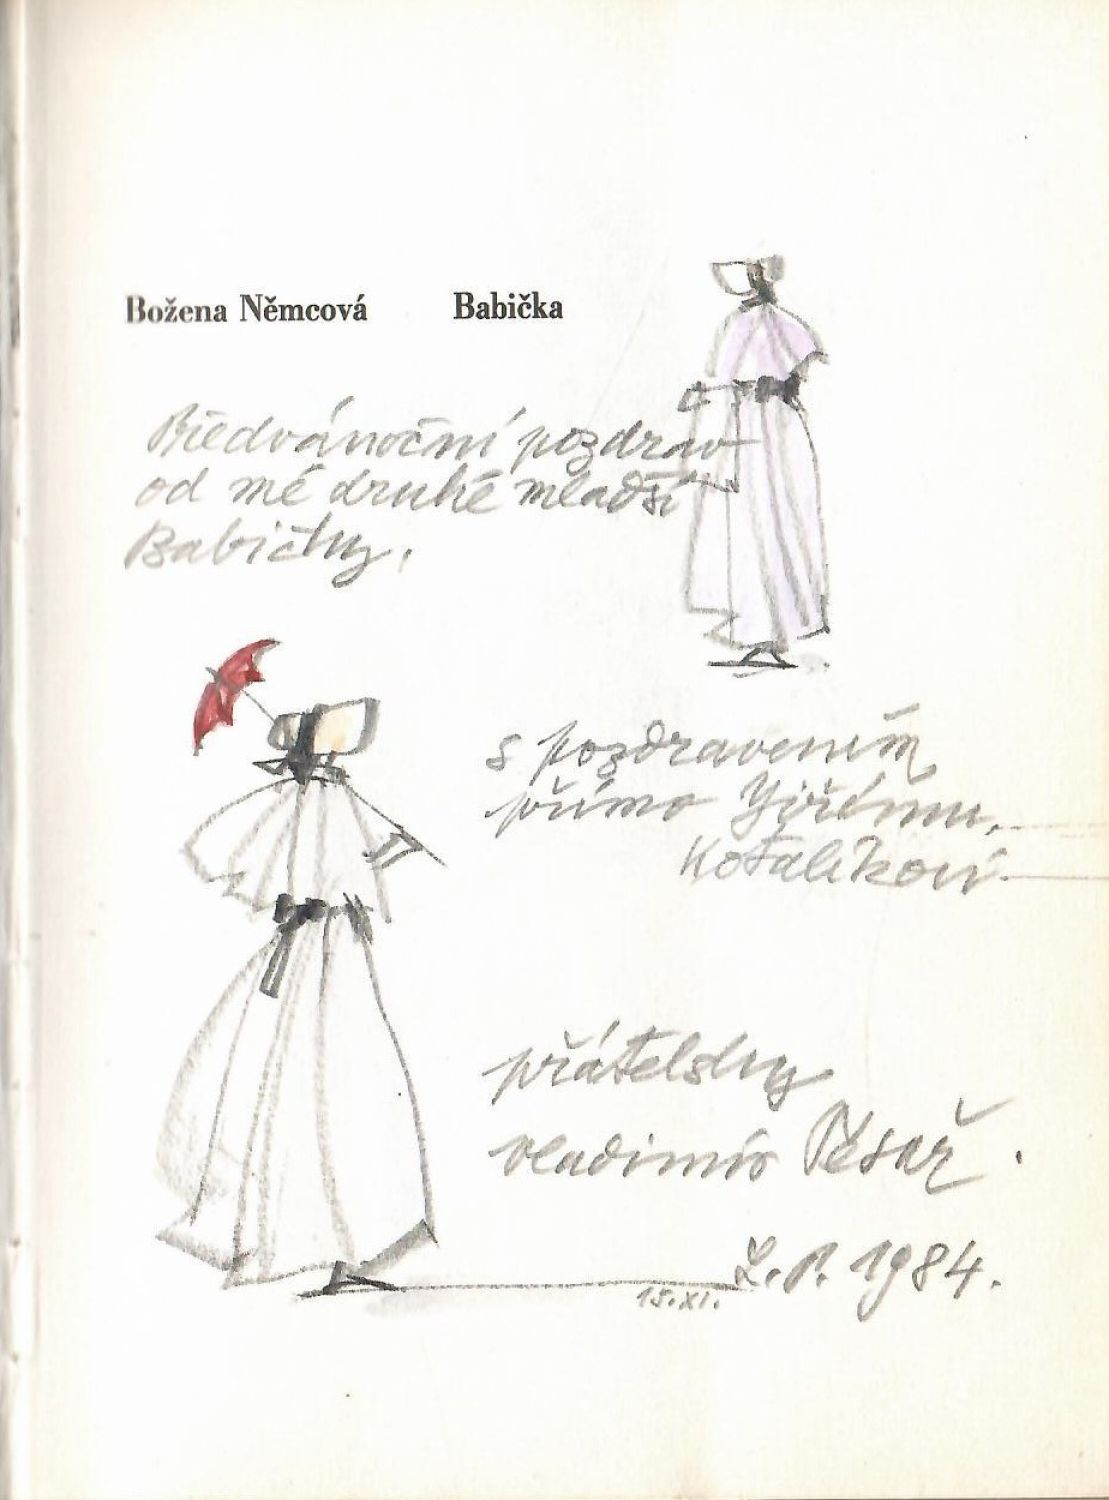 Božena Němcová Babička
Předvánoční pozdrav
od mé druhé mladší
Babičky.
s pozdravením
přímo Jiřému
Kotalíkovi.
přátelsky
vladimír Tesař.
L.P. 1984.
15.XI.